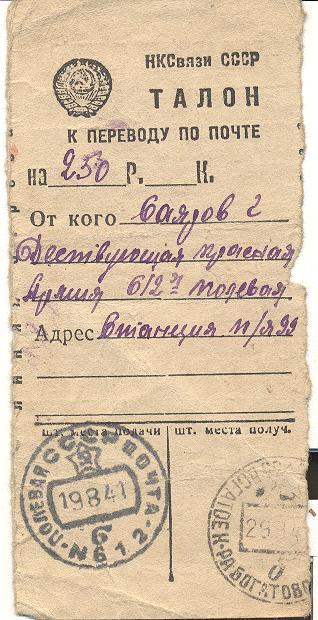 НКСвязи СССР
ТАЛОН
К ПЕРЕВОДУ ПО ПОЧТЕ
на 250 Р. К.
От кого Саяров г
Действующая красная
Армия 612й полевая
Адрес Станция п/я 99
шт. места подачи шт. места получ.
ПОЛЕВАЯ ПОЧТА
СССР
19 8 41
б
N 612
БОГАТОЕ К-РА БОГАТОВС
линия